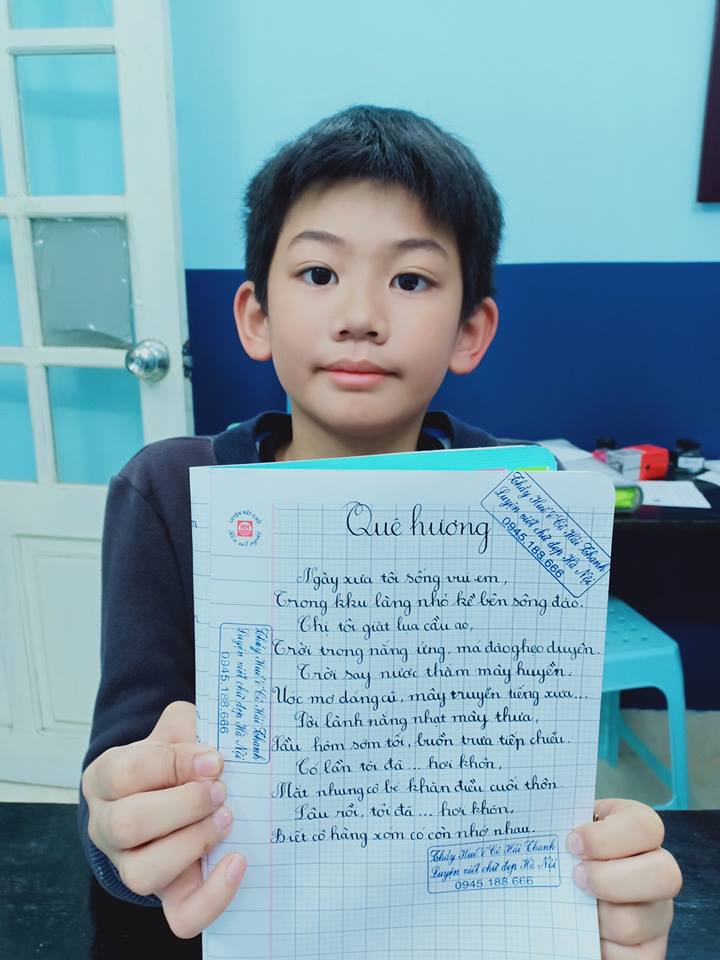 LUYỆN NÉT CHỮ
Rèn nết người
Quê hương
Thầy Huế & Cô Hải Thanh
Luyện viết chữ đẹp Hà Nội
0945.188.666
Ngày xưa tôi sống vui em,
Trong kku làng nhỏ kề bên sông đào.
Chị tôi giặt lụa cầu ao,
Trời trong nắng ửng, má đào ghẹo duyên.
Trời say nước thắm mây huyền.
Ước mơ dáng cũ, mây truyền tiếng xưa...
lành nắng nhạt mây thưa,
Sầu hôm sớm tới, buồn trưa tiếp chiều.
Có lần tôi đã ... hơi khôn,
Mắt nhung cô bé khăn điều cuối thôn.
Lâu rồi, tôi đã ... hơi khôn,
Biết cô hàng xóm có còn nhớ nhau.
Thầy Huế & Cô Hải Thanh
Luyện viết chữ đẹp Hà Nội
0945.188.666
Thầy Huế & Cô Hải Thanh
Luyện viết chữ đẹp Hà Nội
0945.188.666